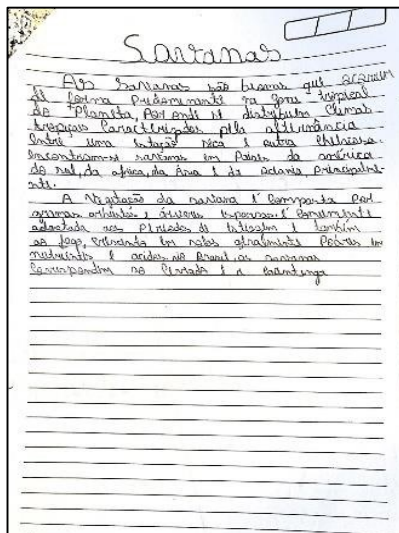 Savanas
As Savanas são biomas que ocorrem
de forma Predominante na zona tropical
do Planeta, Por onde se distribuem climas
tropicais Caracterizados pela alternância
Entre uma Estação seca e outra chuvosa.
Encontram-se savanas em Países da américa
do sul, da africa, da Ásia e da Oceania, principalmen-
te.
A Vegetação da savana é Composta Por
gramas arbustos e árvores esparsas. é Comumente
adaptada aos Períodos de Estiagem e também
ao fogo, crescendo em solos geralmente Pobres em
nutrientes e acidos. no Brasil, as savanas
Correspondem ao Cerrado e a caatinga